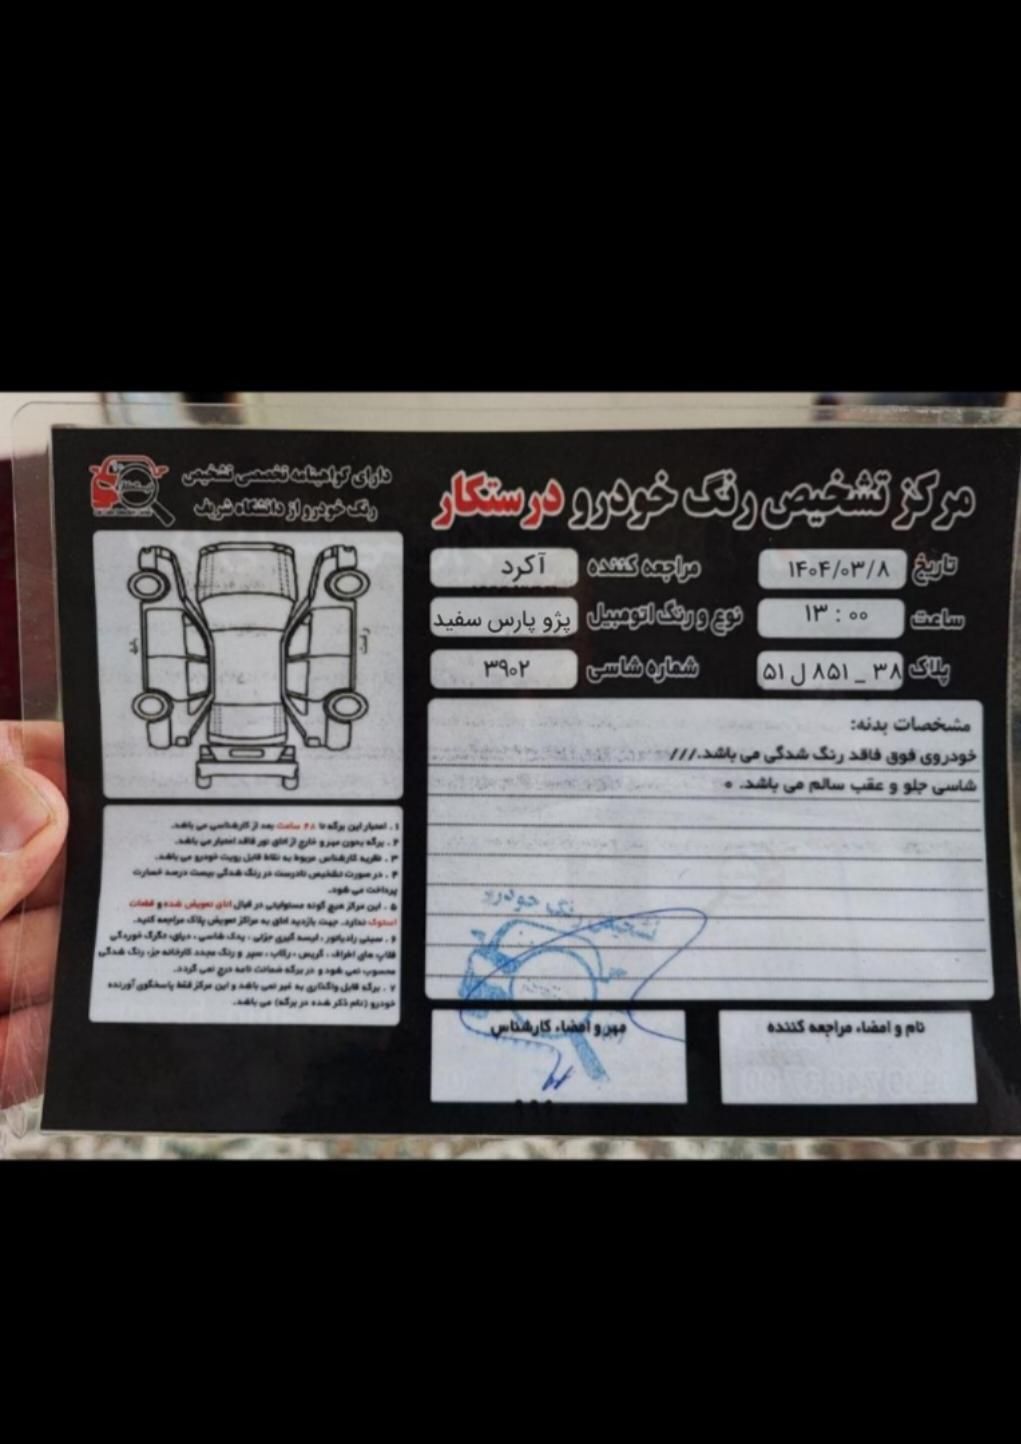 مرکز تشخیص رنگ خودرو درستکار
دارای گواهینامه تخصصی تشخیص
رنگ خودرو از دانشگاه شریف
تاریخ ۱۴۰۴/۰۳/۸
مراجعه کننده آکرد
ساعت ۱۳ : ۰۰
نوع و رنگ اتومبیل پژو پارس سفید
پلاک ۳۸ _ ۸۵۱ ل ۵۱
شماره شاسی ۳۹۰۲
مشخصات بدنه:
خودروی فوق فاقد رنگ شدگی می باشد.///
شاسی جلو و عقب سالم می باشد. ۰
تشخیص رنگ خودرو
مهر و امضاء کارشناس
نام و امضاء مراجعه کننده
راست
۱ . اعتبار این برگه تا ۴۸ ساعت بعد از کارشناسی می باشد.
۲ . برگه بدون مهر و خارج از اتاق نور فاقد اعتبار می باشد.
۳ . نظریه کارشناس مربوط به نقاط قابل رویت خودرو می باشد.
۴ . در صورت تشخیص نادرست در رنگ شدگی بیست درصد خسارت
پرداخت می شود.
۵ . این مرکز هیچ گونه مسئولیتی در قبال اتاق تعویض شده و قطعات
استوک ندارد. جهت بازدید اتاق به مراکز تعویض پلاک مراجعه کنید.
۶ . سینی رادیاتور ، لیسه گیری جزئی ، یدک شاسی ، دیاق، تگرگ خوردگی
قلاب های اطراف ، گریس ، رکاب ، سپر و رنگ مجدد کارخانه جزء رنگ شدگی
محسوب نمی شود و در برگه ضمانت نامه درج نمی گردد.
۷ . برگه قابل واگذاری به غیر نمی باشد و این مرکز فقط پاسخگوی آورنده
خودرو (نام ذکر شده در برگه) می باشد.